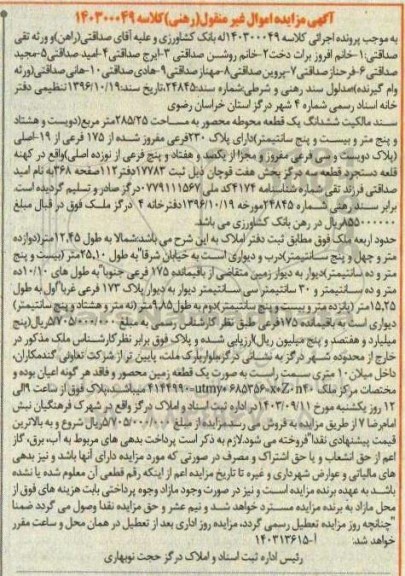 آگهی مزایده اموال غیر منقول(رهنی)کلاسه ۱۴۰۳۰۰۰۴۹
به موجب پرونده اجرائی کلاسه ۱۴۰۳۰۰۰۴۹له بانک کشاورزی و علیه آقای صداقتی(راهن)و ورثه تقی
صداقتی:۱-خانم افروز برات دخت۲-خانم روشن صداقتی ۳-ایرج صداقتی۴-امید صداقتی۵-مجید
صداقتی ۶-فرحناز صداقتی ۷-پروین صداقتی ۸-مهناز صداقتی ۹-هادی صداقتی ۱۰-هانی صداقتی(ورثه
وام گیرنده)مدلول سند رهنی و شرطی شماره سند:۲۴۸۴۵،تاریخ سند:۱۳۹۶/۱۰/۱۹تنظیمی دفتر
خانه اسناد رسمی شماره ۴ شهر درگز استان خراسان رضوی
سند مالکیت ششدانگ یک قطعه محوطه محصور به مساحت ۲۸۵/۲۵متر مربع(دویست و هشتاد
و پنج متر و بیست و پنج سانتیمتر)دارای پلاک ۲۳۰فرعی مفروز شده از ۱۷۵ فرعی از ۱۹-اصلی
(پلاک دویست و سی فرعی مفروز و مجزا از یکصد و هفتاد و پنج فرعی از نوزده اصلی)واقع در کهنه
قلعه دستجرد قطعه سه درگز بخش هفت قوچان ذیل ثبت ۱۷۷۸۳دفتر۱۱۲صفحه ۳۶۸به نام امید
صداقتی فرزند تقی شماره شناسنامه ۴۱۷۴کد ملی ۰۷۷۹۱۱۱۵۶۷درگز صادر و تسلیم گردیده است.
برابر سند رهنی شماره ۲۴۸۴۵مورخه ۱۳۹۶/۱۰/۱۹دفترخانه ۴ درگز ملک فوق در قبال مبلغ
۸۵۵۰۰۰۰۰۰ریال در رهن بانک کشاورزی می باشد.
حدود اربعه ملک فوق مطابق ثبت دفتر املاک به این شرح می باشد:شمالا به طول ۱۲،۴۵متر(دوازده
متر و چهل و پنج سانتیمتر)درب و دیواری است به خیابان شرقا"به طول ۲۵،۱۰متر (بیست و پنج
متر و ده سانتیمتر)دیوار به دیوار زمین متقاضی از باقیمانده ۱۷۵ فرعی جنوبا"به طول های ۱۰/۱۰ده
متر و ده سانتیمتر و ۳۰ سانتیمتر سی سانتیمتر دیوار به دیوار پلاک ۱۷۳ فرعی غربا"اول به طول
۱۵،۲۵متر (پانزده متر و بیست و پنج سانتیمتر)دوم به طول۹،۸۵متر (نه متر و هشتاد و پنج سانتیمتر)
دیواری است به باقیمانده ۱۷۵فرعی طبق نظر کارشناس رسمی به مبلغ ۵/۷۰۵/۰۰۰/۰۰۰ریال(پنج
میلیارد و هفتصد و پنج میلیون ریال)ارزیابی شده و پلاک فوق برابر نظر کارشناس ملک مذکور در
خارج از محدوده شهر درگز به نشانی درگز،بلوارپارک ملت، پایین تر از شرکت تعاونی گندمکاران،
داخل میلان ۱۰ متری سمت راست به صورت یک قطعه زمین محصور و فاقد هر گونه اعیان بوده و
مختصات مرکز ملک میباشد.پلاک فوق از ساعت ۹الی
۱۲ روز یکشنبه مورخ ۱۴۰۳/۰۹/۱۱در اداره ثبت اسناد و املاک درگز واقع در شهرک فرهنگیان نبش
امام رضا ۷ از طریق مزایده به فروش می رسد.مزایده از مبلغ ۵/۷۰۵/۰۰۰/۰۰۰ریال شروع و به بالاترین
قیمت پیشنهادی نقدا"فروخته می شود.لازم به ذکر است پرداخت بدهی های مربوط به آب، برق، گاز
اعم از حق انشعاب و یا حق اشتراک و مصرف در صورتی که مورد مزایده دارای آنها باشد و نیز بدهی
های مالیاتی و عوارض شهرداری و غیره تا تاریخ مزایده اعم از اینکه رقم قطعی آن معلوم شده یا نشده
باشد به عهده برنده مزایده است و نیز در صورت وجود مازاد وجوه پرداختی بابت هزینه های فوق از
محل مازاد به برنده مزایده مسترد خواهد شد و نیم عشر و حق مزایده نقدا وصول می گردد ضمنا
"چنانچه روز مزایده تعطیل رسمی گردد، مزایده روز اداری بعد از تعطیل در همان محل و ساعت مقرر
خواهد شد. آ-۱۴۰۳۱۳۶۱۵
رئیس اداره ثبت اسناد و املاک درگز حجت نوبهاری